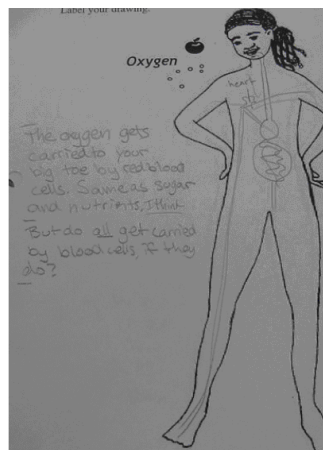 Label your drawing.
Oxygen
heart
The oxygen gets
carried to your
big toe by red blood
cells. Same as sugar
and nutrients, I think.
But do all get carried
by blood cells, if they
do?